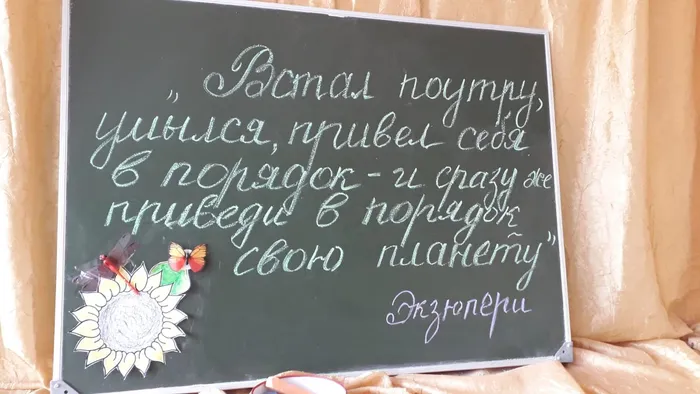 „Встал поутру,
умылся, привел себя
в порядок - и сразу же
приведи в порядок
свою планету”
Экзюпери